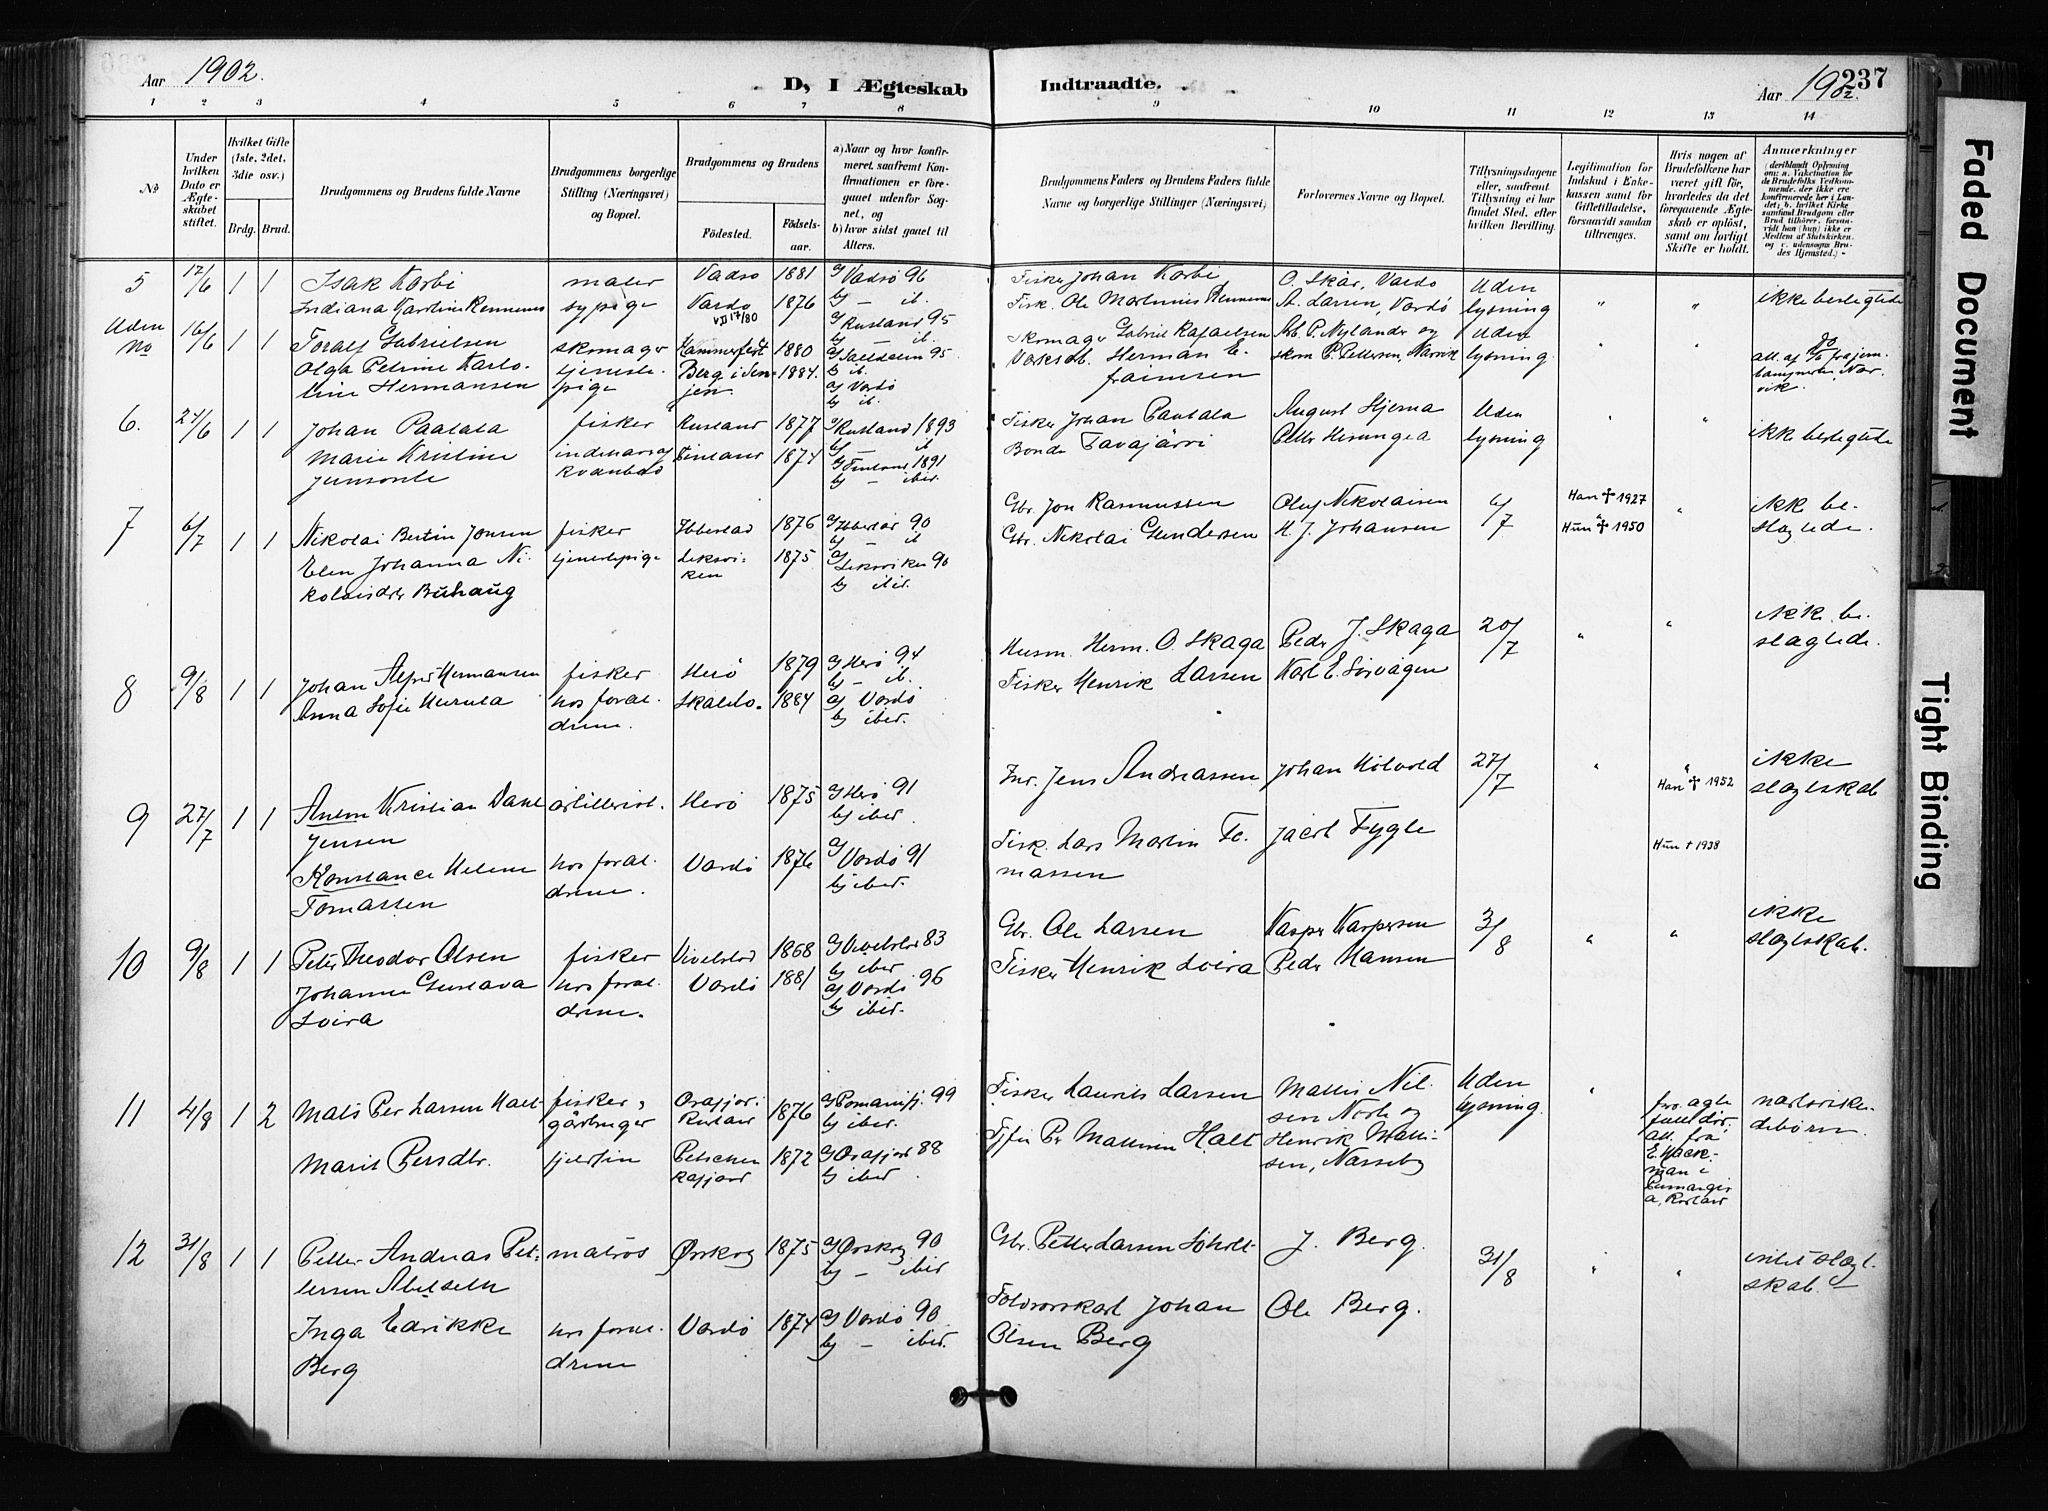 Aar 1902.
D, I Ægteskab
Indtraadte.
Aar 1902.
237
1 2 3 4 5 6 7 8 9 10 11 12 13 14
No
Under hvilken Dato er Ægteskabet stiftet.
Hvilket Gifte (1ste, 2det, 3die osv.)
Brdg. Brud.
Brudgommens og Brudens fulde Navne
Brudgommens borgerlige Stilling (Næringsvei) og Bopæl.
Brudgommens og Brudens
Födested.
Födselsaar.
a) Naar og hvor konfirmeret, saafremt Konfirmationen er foregaaet udenfor Sognet, og
b) hvor sidst gaaet til Alters.
Brudgommens Faders og Brudens Faders fulde Navne og borgerlige Stillinger (Næringsvei)
Forlovernes Navne og Bopæl.
Tillysningsdagene eller, saafremt Tillysning ei har fundet Sted, efter hvilken Bevilling.
Legitimation for Indskud i Enkekassen samt for Giftetilladelse, forsaavidt saadan tiltrænges.
Hvis nogen af Brudefolkene har været gift før, hvorledes da det foregaaende Ægteskab er opløst, samt om lovligt Skifte er holdt.
Anmærkninger
(deriblandt Oplysning om: a. Vakcination for de Brudefolks Vedkommende, der ikke ere konfirmerede her i Landet; b. hvilket Kirkesamfund Brudgom eller Brud tilhører, forsaavidt han (hun) ikke er Medlem af Statskirken, og c. udensogns Brudes Hjemsted.)
5 17/6 1 1 Isak Korbi
maler Vadsø 1881 a) Vadsø 96
b) — ib.
Fisker Johan Korbi
O. Skår, Vardø
Uden lysning
" "
ikke beslegtede
Indiana Karoline Rennemo
sypige Vardø 1876
VII 17/80
a) Rusland 95
b) — ib.
Fisk. Ole Martinus Rennemo
A. Larsen, Vardø
Uden No 16/6 1 1 Toralf Gabrielsen
skomager Hammerfest 1880
b) ib.
Skomager Gabriel Rafaelsen
Arb. P. Nylander og
skom P. Pettersen, Narvik
Uden lysning
" "
Olga Petrine Karoline Hermansen
tjenestepige
Berg i Senjen 1884.
a) Vardø
b) ib.
Herman Efraimsen
6. 27/6 1 1 Johan Paalala
fisker Rusland 1877 a) Rusland 1893
b) — ib
Fisker Johan Paalala
August Hjerna
Uden lysning
" "
ikke beslegtede
Marie Kristine
Finland 1874 a) Finland 1891
b) — ibid.
Bonde Tavajärvi
7 6/7 1 1 Nikolai Bertin Jonsen
fisker Ibbestad 1876 a) Ibbestad 90
b) — ib
Gbr. Jon Rasmussen
Oluf Nikolaisen
6/7
Han ✝ 1927
Hun ✝ 1950
"
ikke beslegtede.
Elen Johanna Nikolaisdtr Buhaug
tjenestepige Leksviken 1875 a) Leksviken 90
b) ibid.
Gbr. Nikolai Gundersen
H. J. Johansen
8 9/8 1 1 Johan Alfred Hermansen
fisker Herø 1879 a) Herø 94
b) — ib.
Husm. Herm. O. Skaga
Peder J. Skaga
20/7
" "
ikke beslegtede.
Anna Sofie
hos foreldrene. 1884 a) Vardø
b) ibid.
Fisker Henrik Larsen
Karl E. Sørvågen
9 27/7 1 1 Anton Kristian Dane Jensen
artillerist. Herø 1875 a) Herø 91
b) ibid.
Inr. Jens Andreassen
Johan Holvold
27/7
" "
Han ✝ 1952
Hun ✝ 1938
ikke slegtskab
Konstance Helene Tomassen
hos foreldrene. Vardø 1876 a) Vardø 91
b) ibid.
Fisk. Lars Martin Tomassen
Jacob Fygle
10 9/8 1 1 Peter Theodor Olsen
fisker Vivelstad 1868 a) Vivelstad 83
b) ibid
Gbr. Ole Larsen
Kasper Kaspersen
3/8
" "
ikke slegtskab.
Johanne Gustava Loira
hos foreldrene. Vardø 1881 a) Vardø 96
b) ibid.
Fisker Henrik Loira
Peder Hansen
11 4/8 1 2 Mats Per Larsen Halt
fisker, gårdbruger 1876 a) Pomanifj. 99
b) ibid.
Fisker Laurits Larsen
Mattis Nilsen Norte og
Uden lysning.
"
Marit Persdtr.
fjeldfin 1872 88
b) ibid
Fjfin Per Mattisen Halt
Henrik Mattisen, Nasseby
12 31/8 1 1 Petter Andreas Pettersen Abelseth
matros Ørskog 1875 a) Ørskog 90
b) — ibid
Gbr. Petter Larsen Soholt
J. Berg.
31/8
" "
intet slegtskab.
Inga Edrikke Berg
hos foreldrene Vardø 1874 a) Vardø 90
b) — ibid.
Johan Olsen Berg
Ole Berg.
Faded Document
Tight Binding